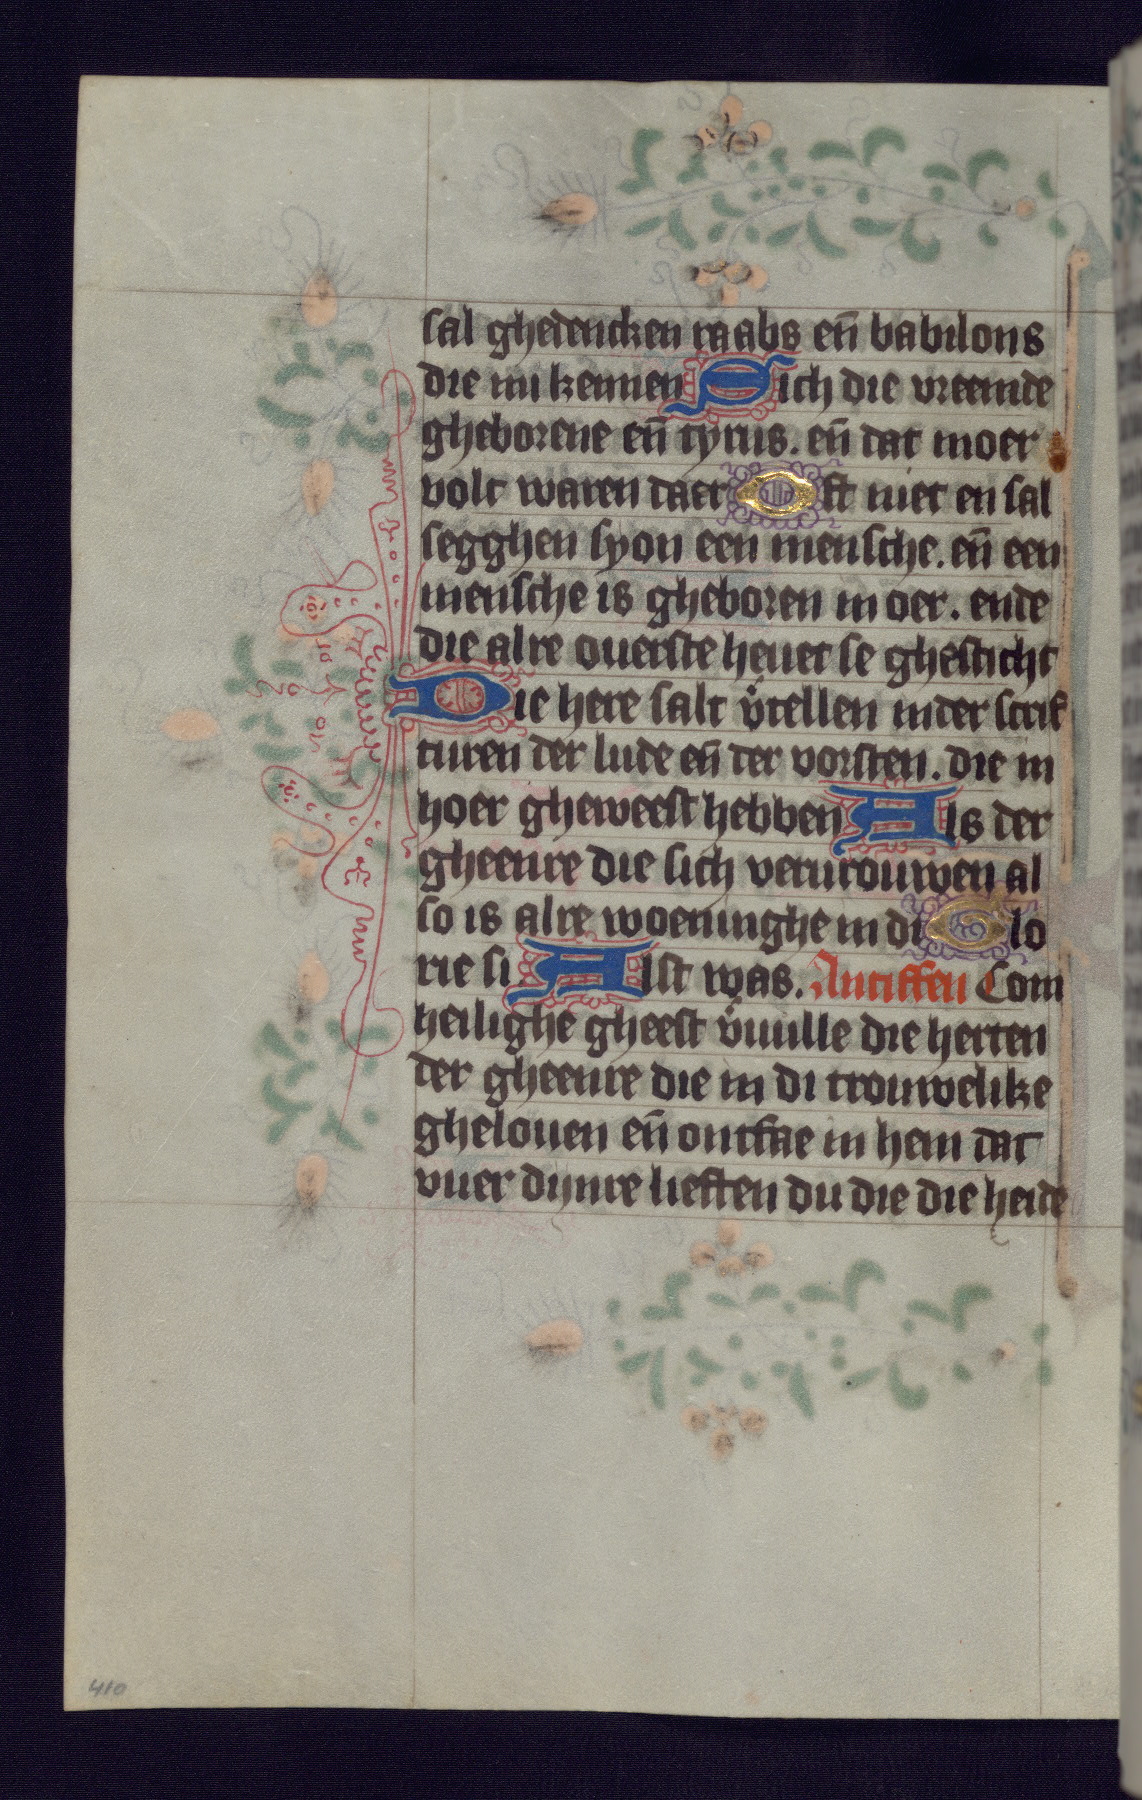 sal ghedencken raabs en̄ babilons
die mi kennen Sich die vreemde
gheborene en̄ tyrus. en̄ dat moer
volc waren daer Oft niet en sal
segghen syon een mensche. en̄ een
mensche is gheboren in oer. ende
die alre ouerste heuet se ghesticht
Die here salt v̾tellen inder scrif
turen der lude en̄ der vorsten. die in
hoer gheweest hebben Als der
gheenre die sich verurouwen al
so is alre woeninghe in di Glo
rie si Alst was. Antiffen Com
heilighe gheest v̾uulle die herten
der gheenre die in di trouwelike
ghelouen en̄ ontfae in hem dat
vuer dynre lieften du die die heide
410